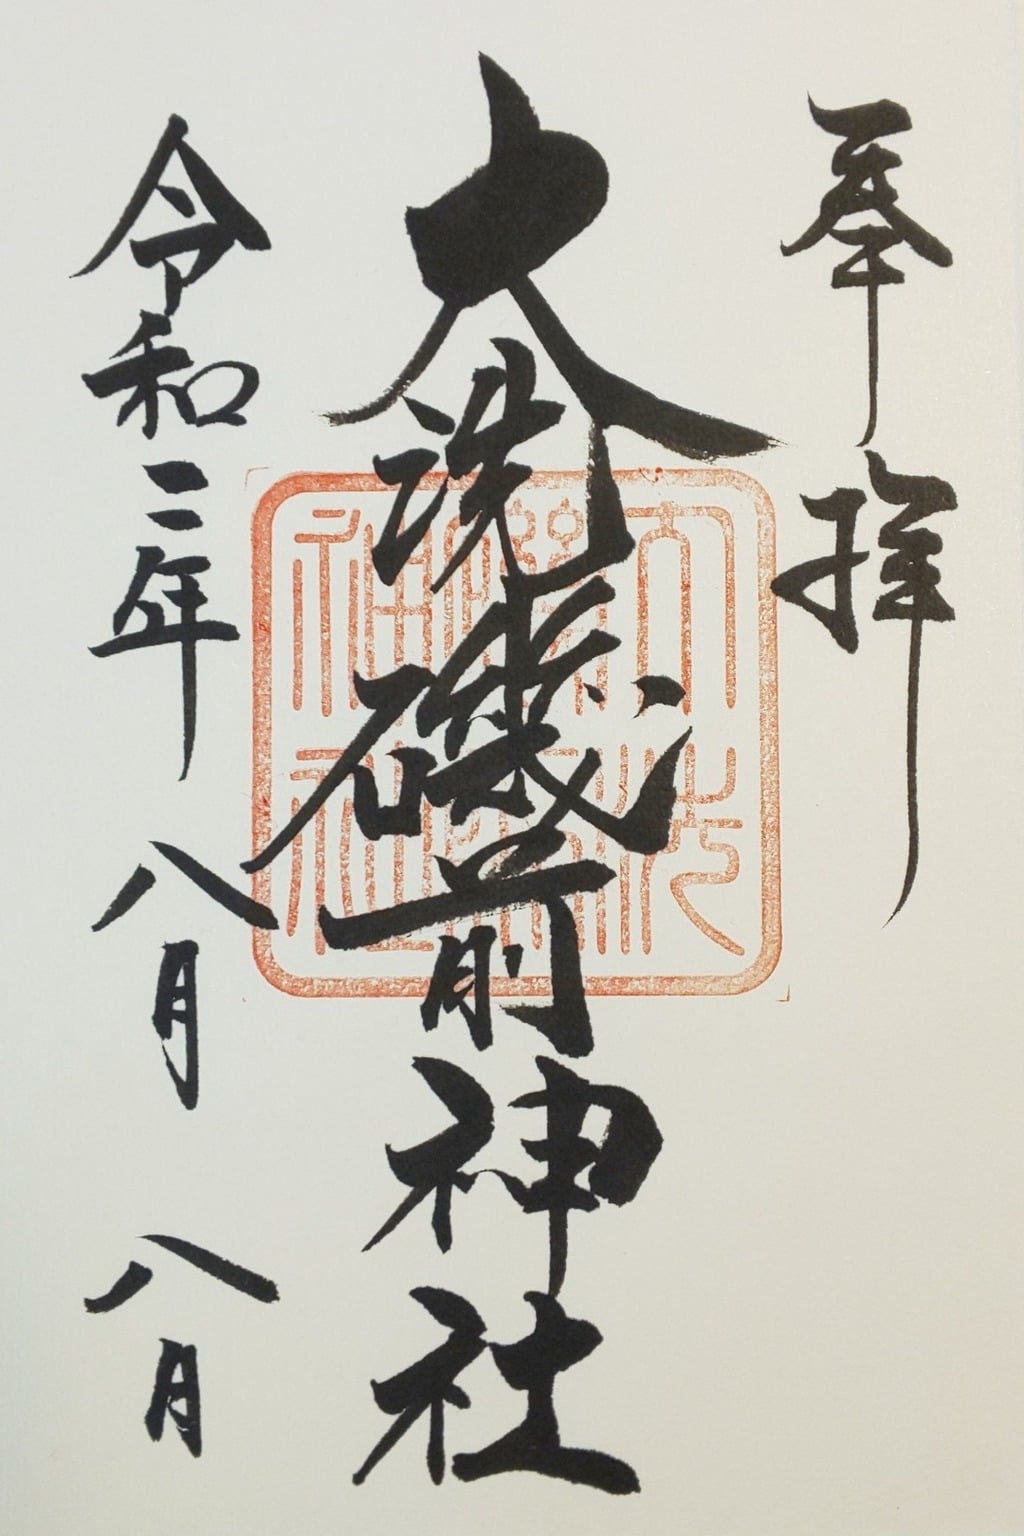 奉拝
大洗磯前神社
令和二年八月八日
大洗
磯前
神社